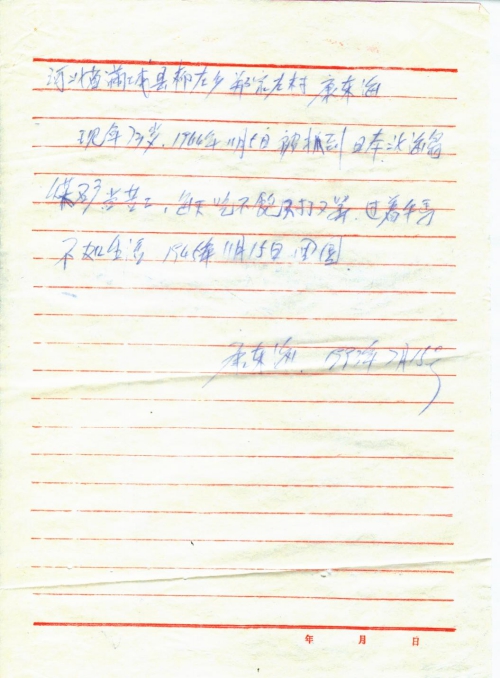 河北省藁城县 庄村 康东海
现年73岁，1944年11月5日被抓到日本北海道
煤矿当苦工，每天吃不饱 打 骂，过着牛马
不如生活 1945年11月15日回国
康东海 年2月15日
年 月 日